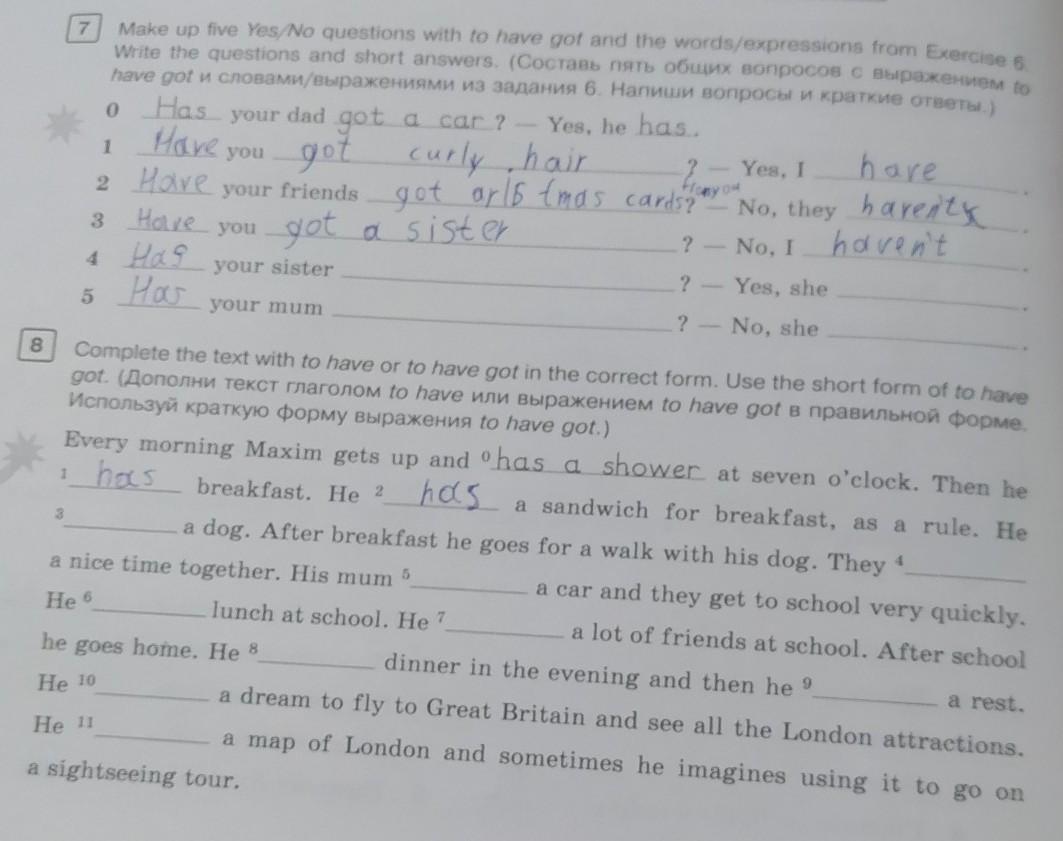 7 Make up five Yes/No questions with to have got and the words/expressions from Exercise 6.
Write the questions and short answers. (Составь пять общих вопросов с выражением to
have got и словами/выражениями из задания 6. Напиши вопросы и краткие ответы.)
0 Has your dad got a car? — Yes, he has.
1 Have you got curly hair ? — Yes, I have.
2 Have your friends got cards? — No, they haven't.
3 Have you got a sister ? — No, I haven't.
4 Has your sister ? — Yes, she .
5 Has your mum ? — No, she .
8 Complete the text with to have or to have got in the correct form. Use the short form of to have
got. (Дополни текст глаголом to have или выражением to have got в правильной форме.
Используй краткую форму выражения to have got.)
Every morning Maxim gets up and 0 has a shower at seven o'clock. Then he
1 has breakfast. He 2 has a sandwich for breakfast, as a rule. He
3 a dog. After breakfast he goes for a walk with his dog. They 4
a nice time together. His mum 5 a car and they get to school very quickly.
He 6 lunch at school. He 7 a lot of friends at school. After school
he goes home. He 8 dinner in the evening and then he 9 a rest.
He 10 a dream to fly to Great Britain and see all the London attractions.
He 11 a map of London and sometimes he imagines using it to go on
a sightseeing tour.